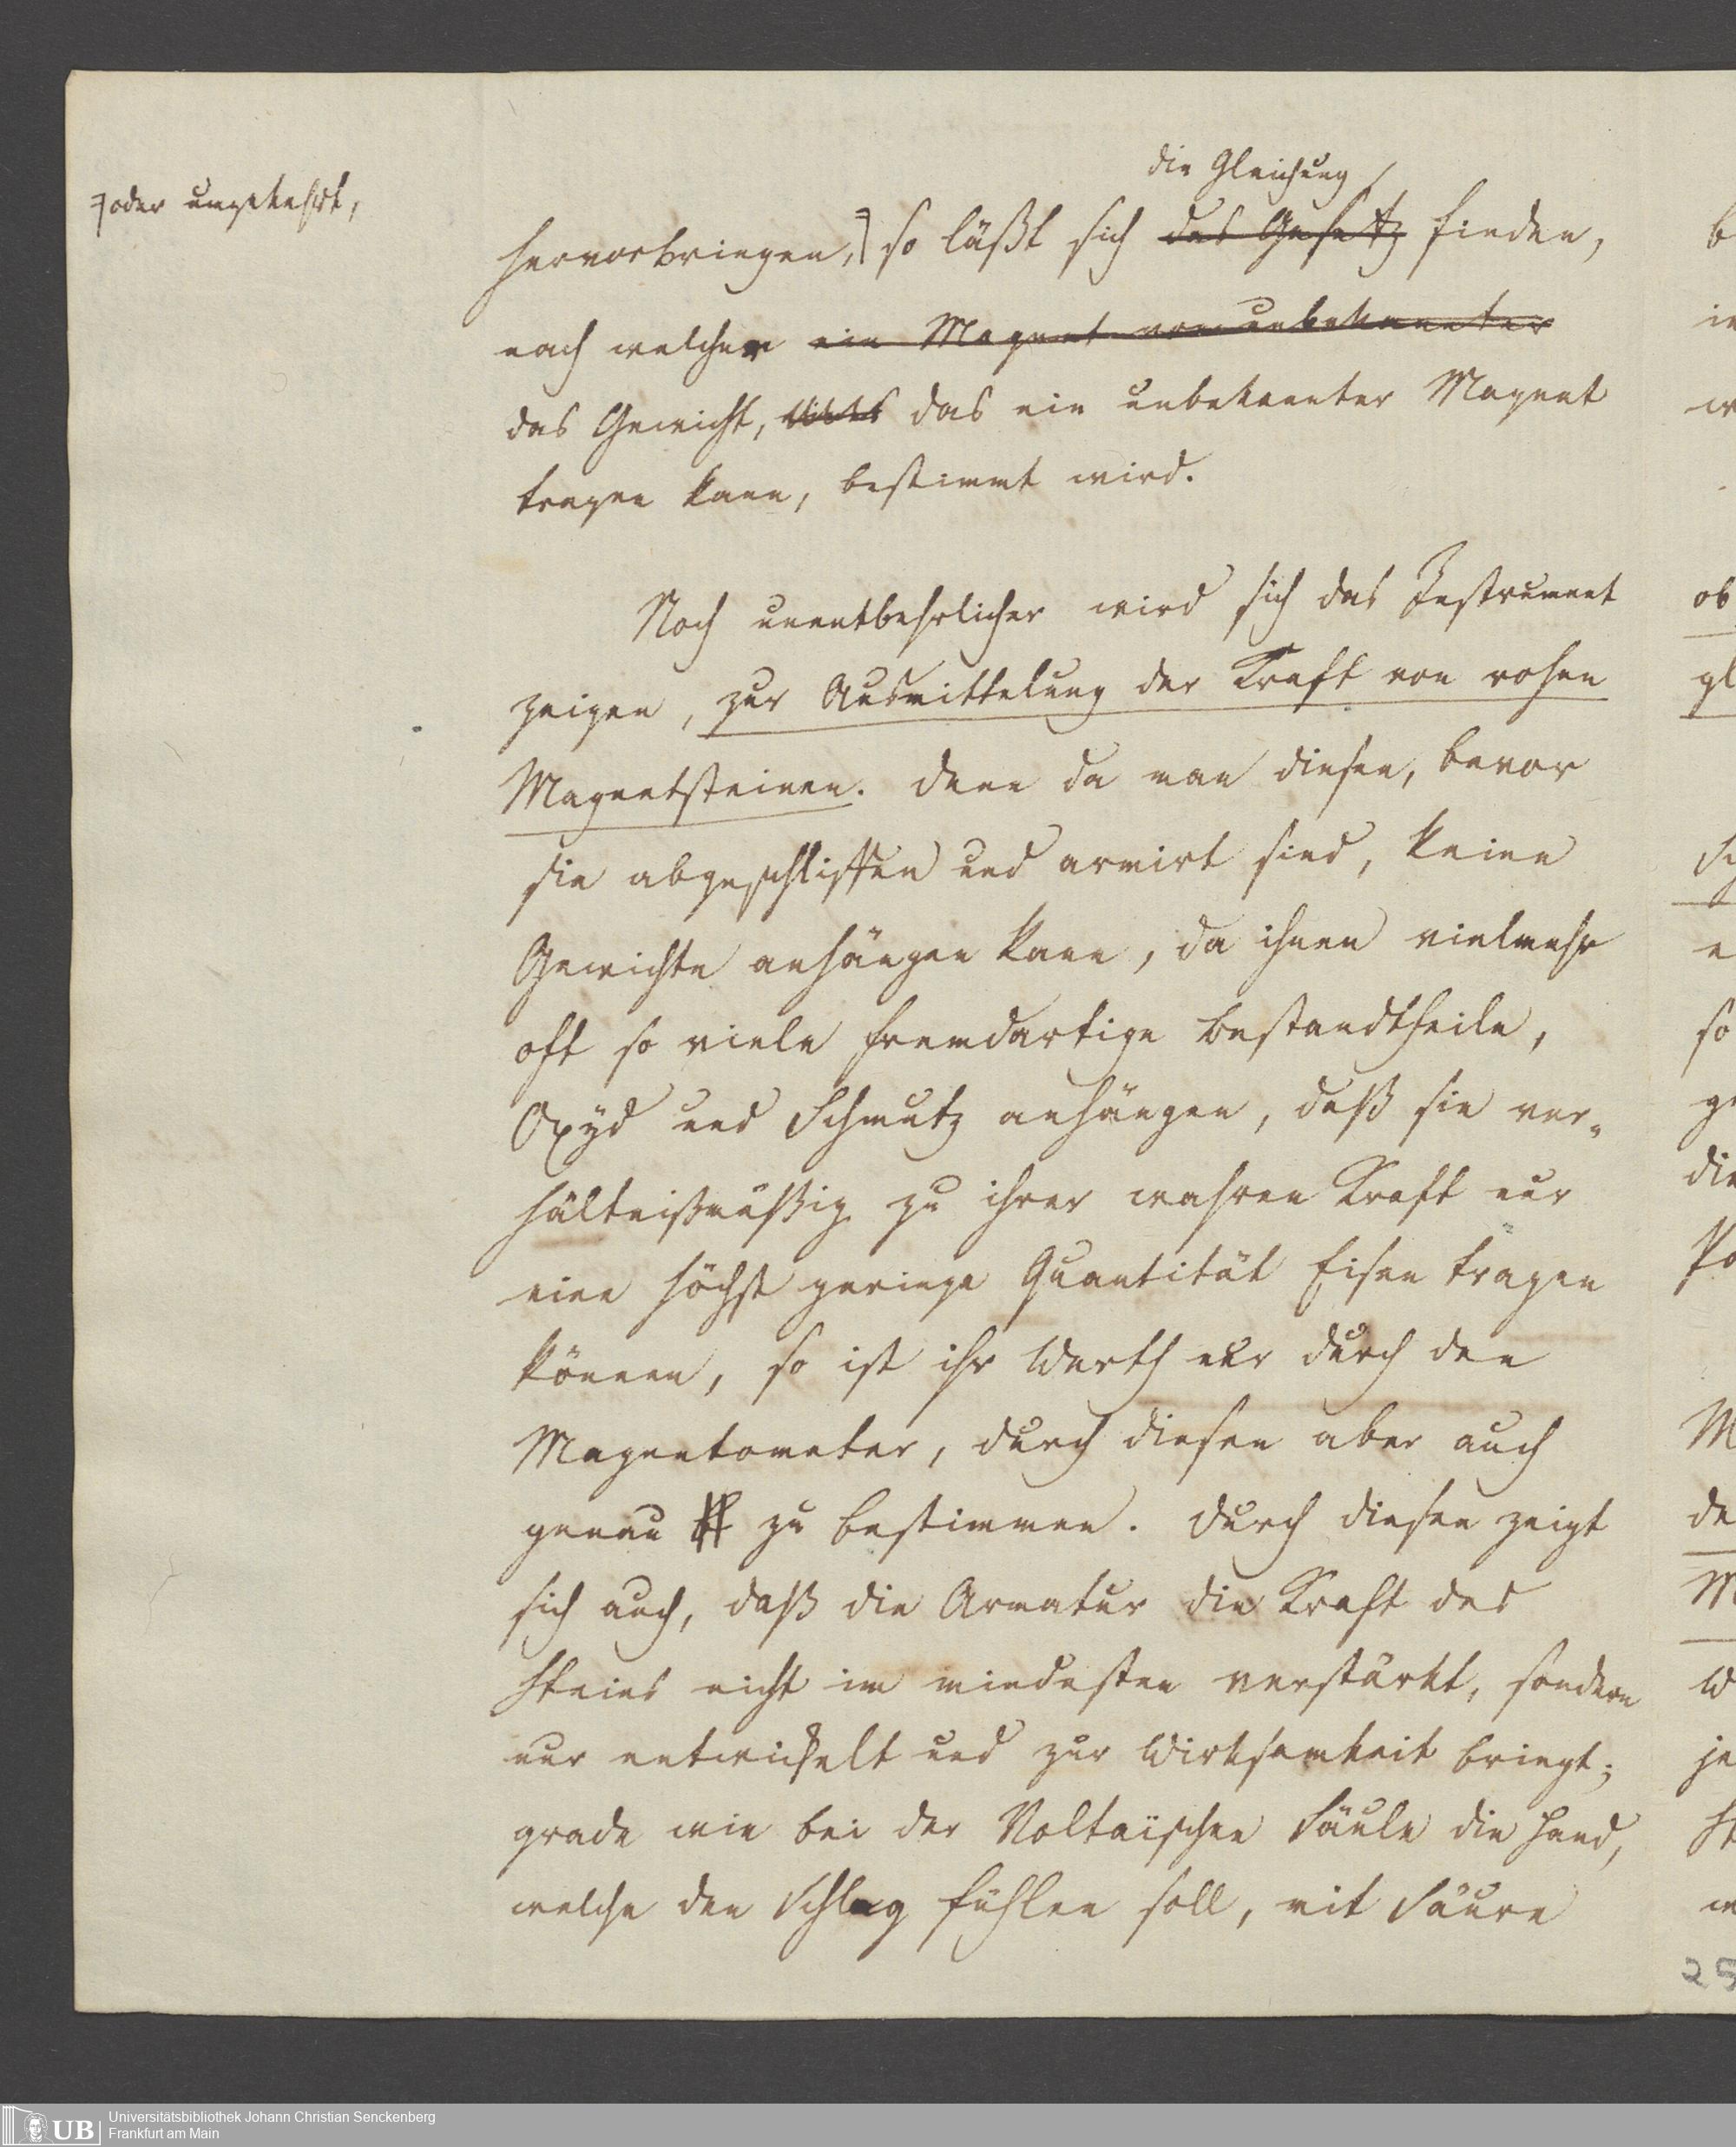 die Gleichung
⌉oder umgekehrt,
hervorbringen,⌉ so läßt sich das Gesetz finden,
nach welcher ein Magnet von unbekannter
das Gewicht, das ein unbekannter Magnet
tragen kann, bestimmt wird.
Noch unentbehrlicher wird sich das Instrument
zeigen, zur Ausmittelung der Kraft von rohen
Magnetsteinen. Denn da man diesen, bevor
sie abgeschliffen und armirt sind, keine
Gewichte anhängen kann, da ihnen vielmehr
oft so viele fremdartige Bestandtheile,
Oxyd und Schmutz anhängen, daß sie ver-
hältnißmäßig zu ihrer wahren Kraft nur
eine höchst geringe Quantität Eisen tragen
können, so ist ihr Werth nur durch den
Magnetometer, durch diesen aber auch
genau zu bestimmen. Durch diesen zeigt
sich auch, daß die Armatur die Kraft des
Steins nicht im mindesten verstärkt, sondern
nur entwickelt und zur Wirksamkeit bringt;
grade wie bei der Voltaïschen Säule die Hand,
welche den Schlag fühlen soll, mit Säure
b
ob
gl
so
ge
die
Po
M
de
M
W
je
St
25
UB
Universitätsbibliothek Johann Christian Senckenberg
Frankfurt am Main